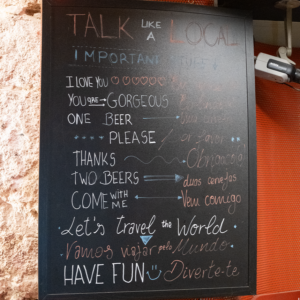 TALK LIKE A LOCAL
IMPORTANT
I LOVE YOU
YOU ARE GORGEOUS
ONE BEER
PLEASE Por favor
THANKS Obrigado
TWO BEERS duas cervejas
COME WITH ME Vem comigo
Let's travel the World
Vamos viajar pelo Mundo
HAVE FUN Diverte-te